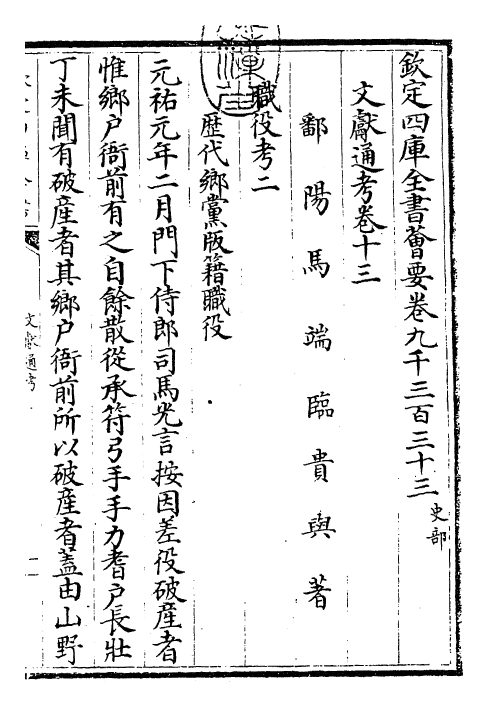 欽定四庫全書薈要卷九千三百三十三史部
文獻通考卷十三
鄱陽馬端臨貴與著
職役考二
歷代鄉黨版籍職役
元祐元年二月門下侍郎司馬光言按因差役破産者
惟鄉户衙前有之自餘散從承符弓手手力耆户長壯
丁未聞有破産者其鄉户衙前所以破産者蓋由山野
文獻通考
一